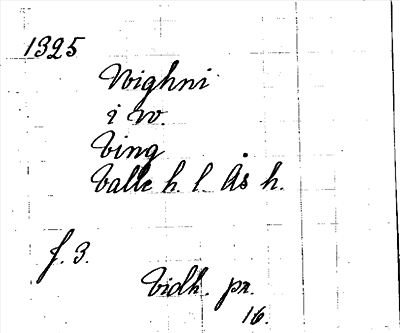 1325
Wighni
i W.
Ving
Valle h. l. Ås h.
f. 3.
Vidh. pr.
16.